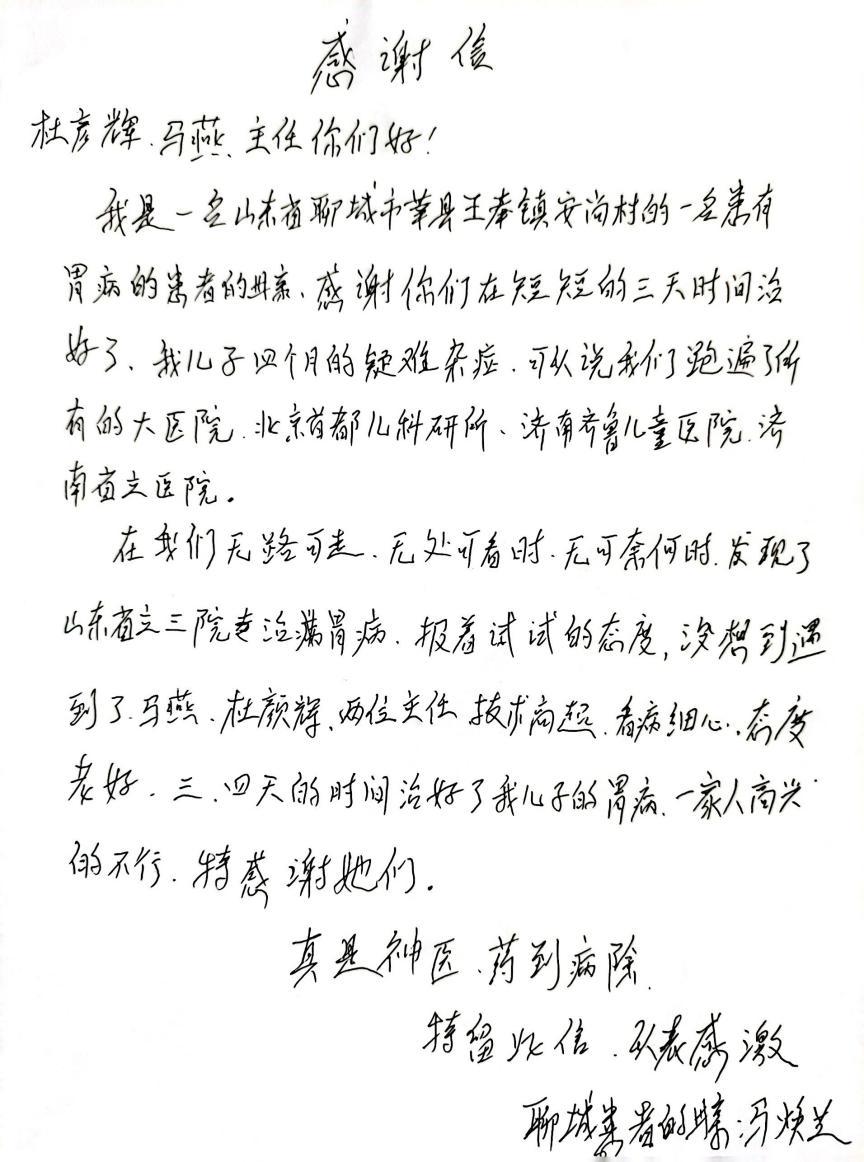 感谢信
杜彦辉、马燕、主任你们好！
我是一名山东省聊城市莘县王奉镇安尚村的一名患有
胃病的患者的母亲、感谢你们在短短的三天时间治
好了、我儿子四个月的疑难杂症、可以说我们跑遍了所
有的大医院、北京首都儿科研所、济南齐鲁儿童医院、济
南省立医院。
在我们无路可走、无处可看时、无可奈何时、发现了
山东省立三院专治满胃病、报着试试的态度，没想到遇
到了、马燕、杜颜辉、两位主任技术高起、看病细心、态度
老好、三、四天的时间治好了我儿子的胃病、一家人高兴
的不行、特感谢她们。
真是神医、药到病除、
特留此信、以表感激
聊城患者的母亲：冯焕兰